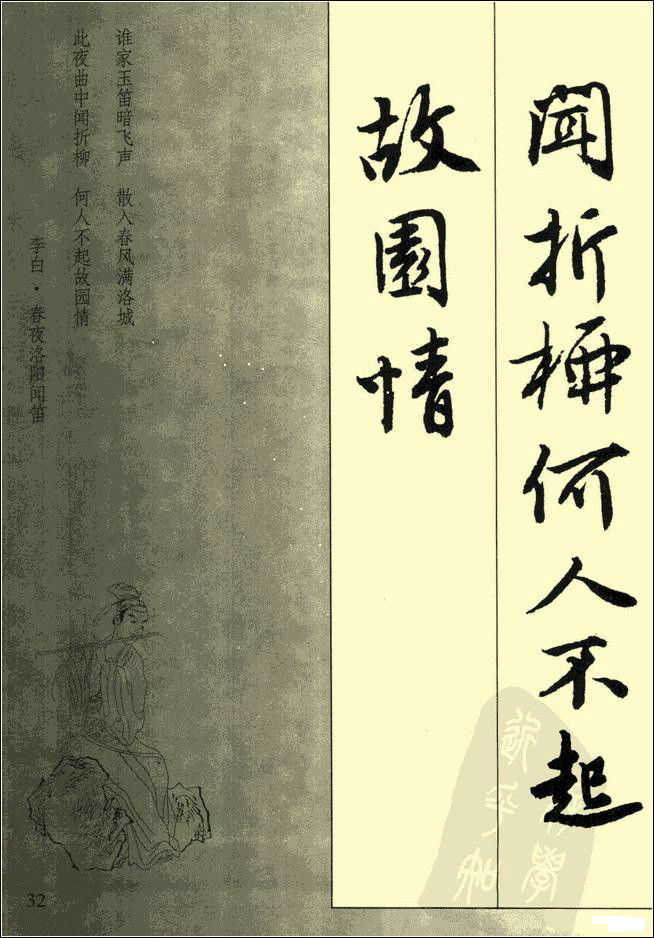 聞折柳何人不起
故園情
谁家玉笛暗飞声 散入春风满洛城
此夜曲中闻折柳 何人不起故园情
李白·春夜洛阳闻笛
32